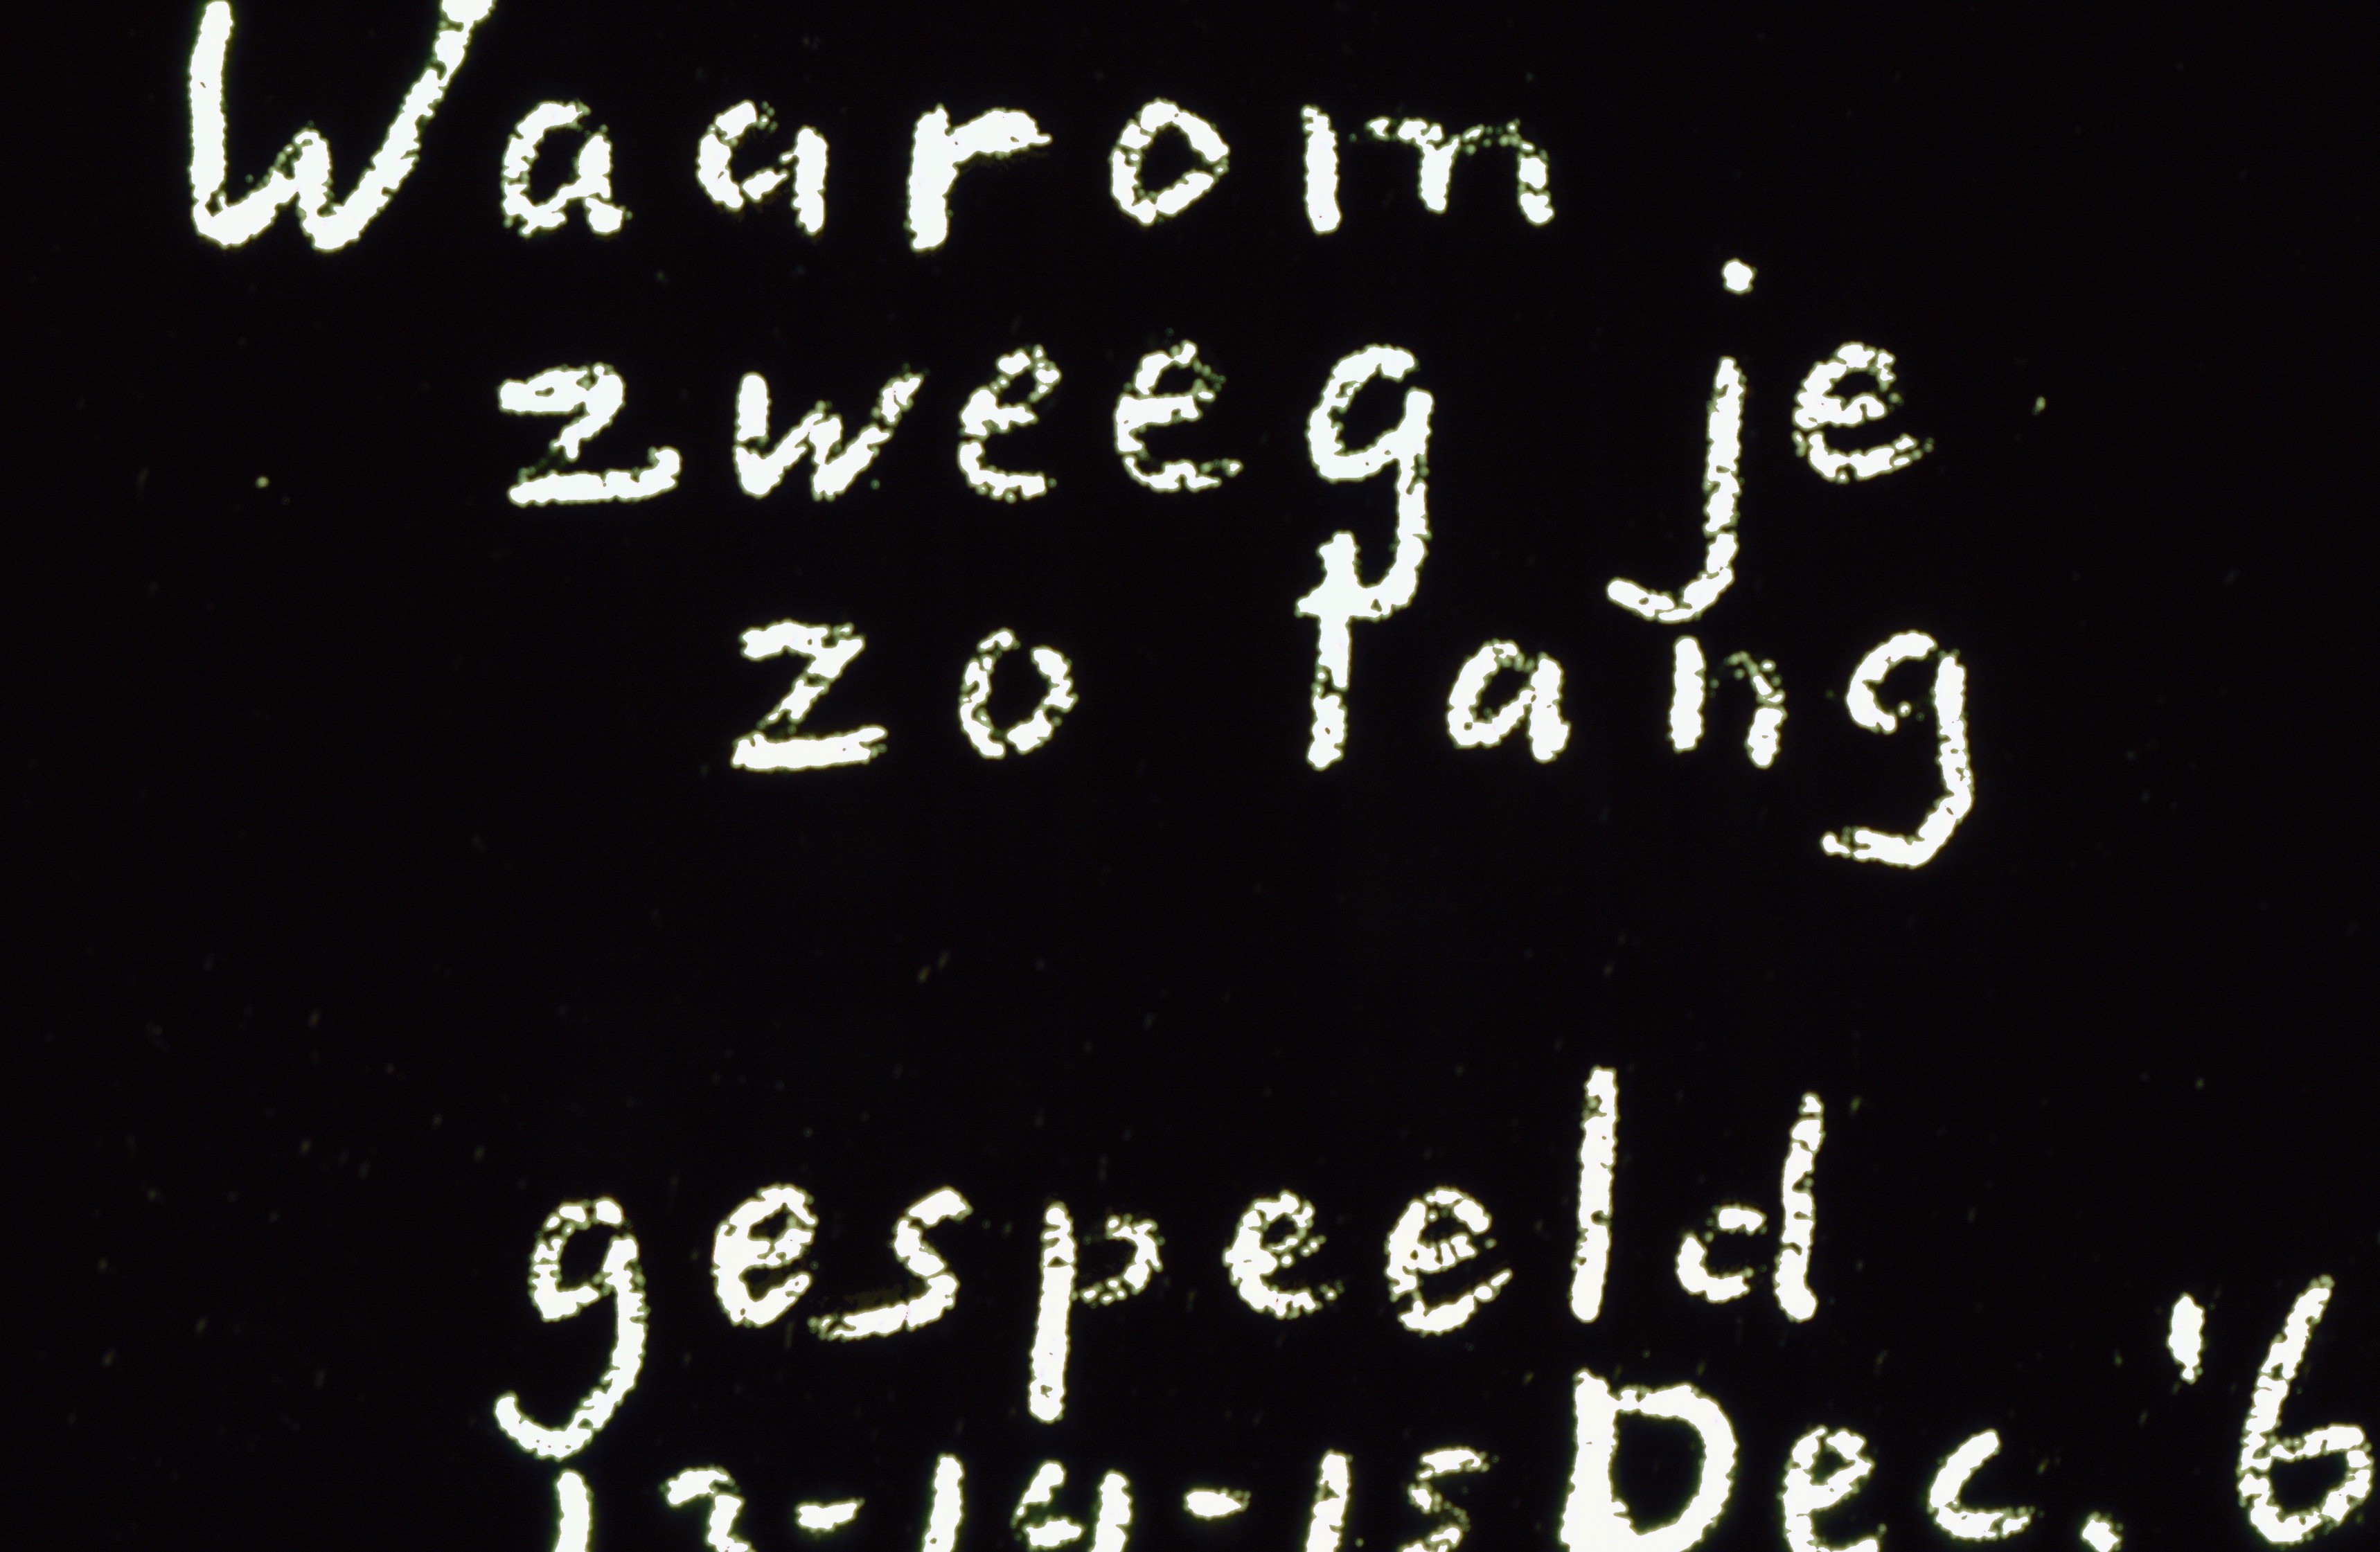 Waarom
zweeg je
zo lang
gespeeld
13-14-15 Dec. '6